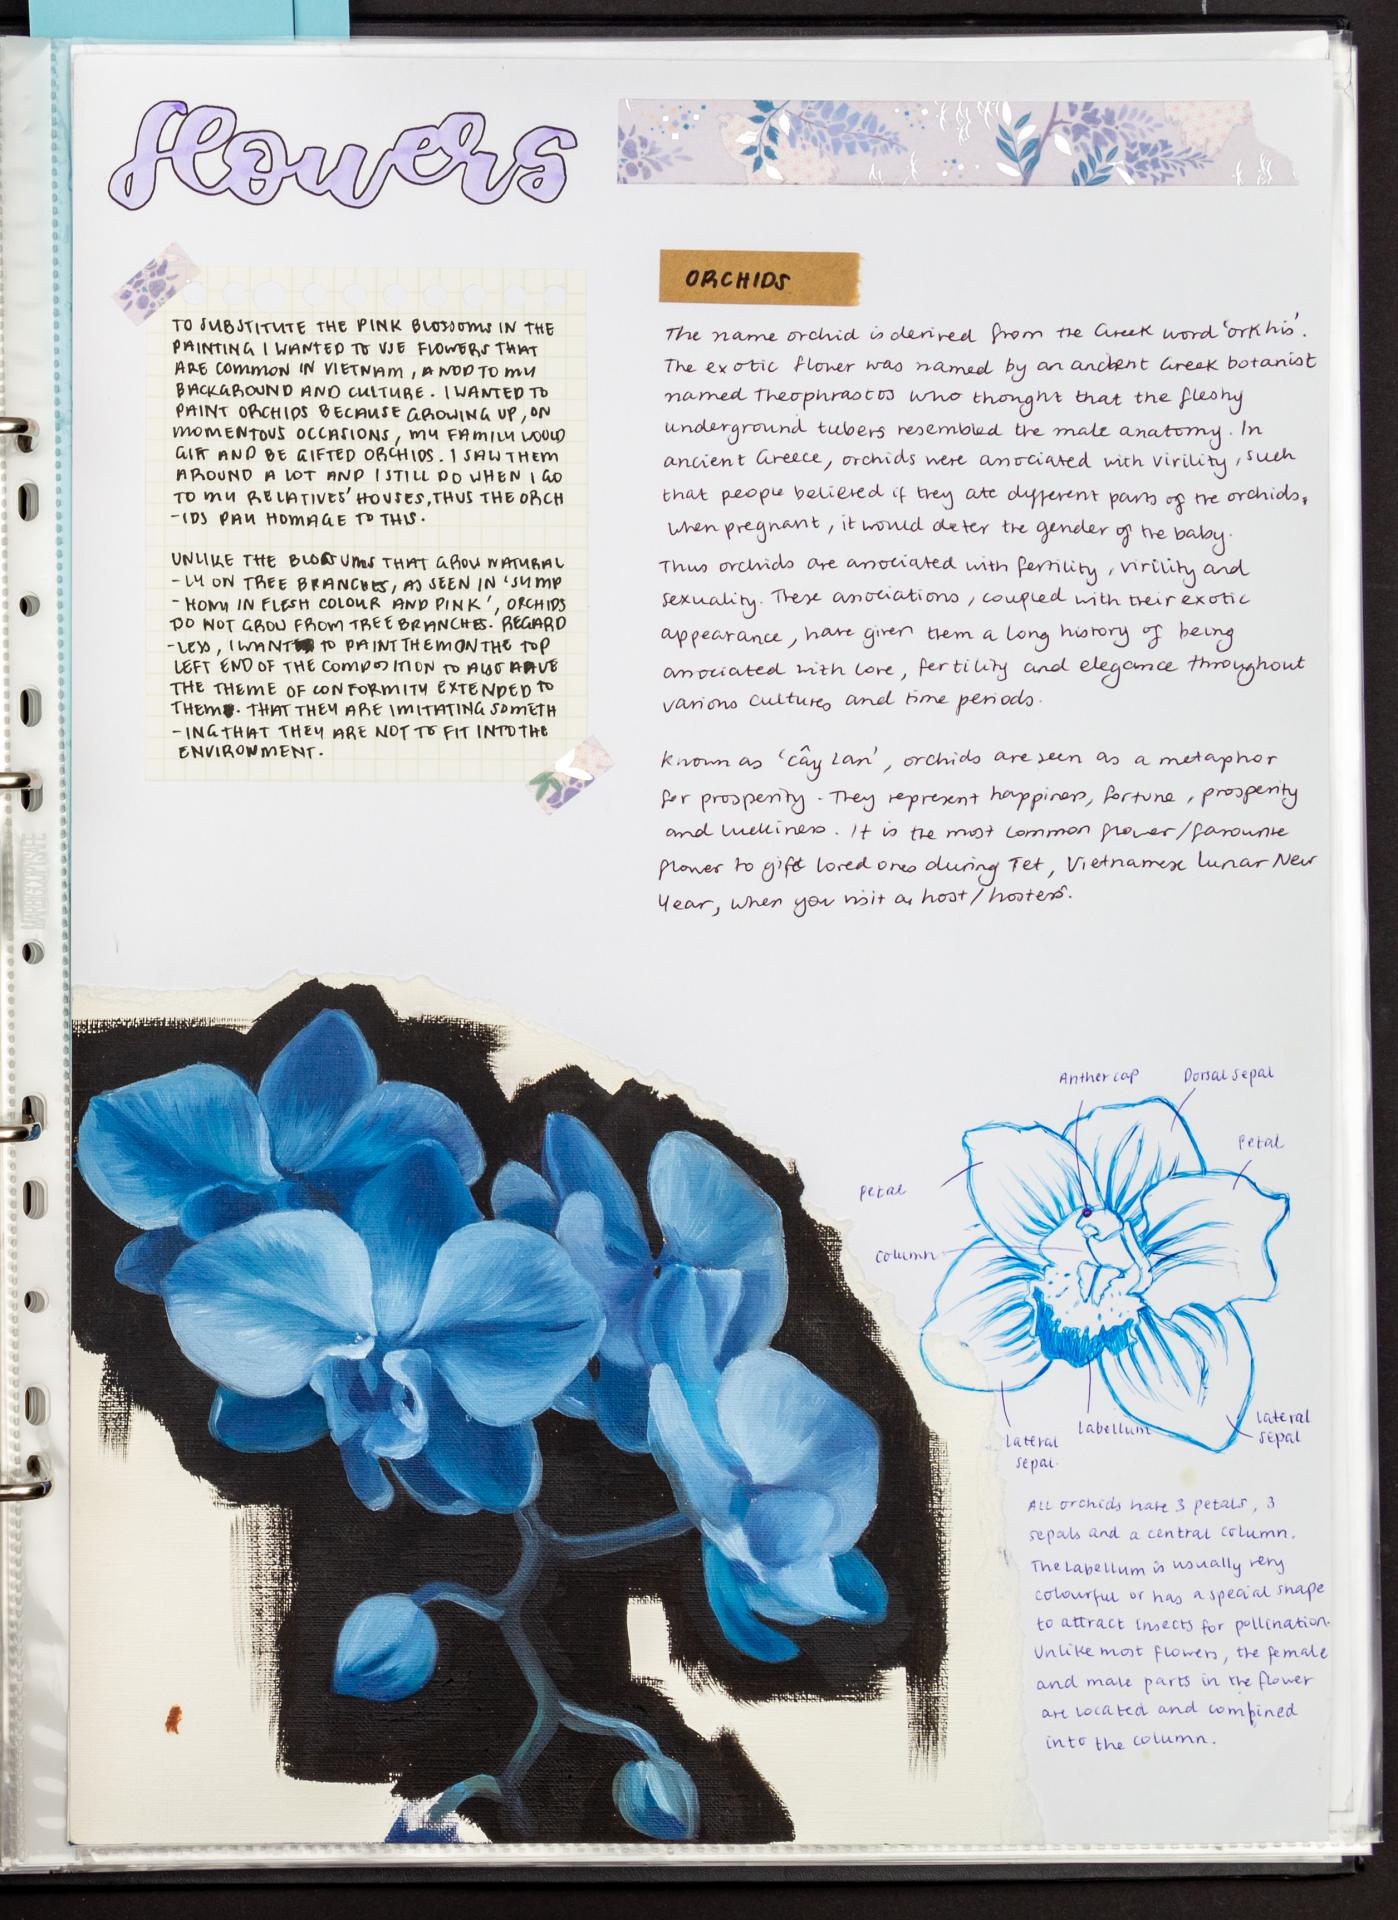 flowers
TO SUBSTITUTE THE PINK BLOSSOMS IN THE
PAINTING I WANTED TO USE FLOWERS THAT
ARE COMMON IN VIETNAM, A NOD TO MY
BACKGROUND AND CULTURE. I WANTED TO
PAINT ORCHIDS BECAUSE GROWING UP, ON
MOMENTOUS OCCASIONS, MY FAMILY WOULD
GIFT AND BE GIFTED ORCHIDS. I SAW THEM
AROUND A LOT AND I STILL DO WHEN I GO
TO MY RELATIVES' HOUSES, THUS THE ORCH
-IDS PAY HOMAGE TO THIS.
UNLIKE THE BLOSSUMS THAT GROW NATURAL
-LY ON TREE BRANCHES, AS SEEN IN 'SYMP
-HONY IN FLESH COLOUR AND PINK', ORCHIDS
DO NOT GROW FROM TREE BRANCHES. REGARD
-LESS, I WANT TO PAINT THEM ON THE TOP
LEFT END OF THE COMPOSITION TO ALSO HAVE
THE THEME OF CONFORMITY EXTENDED TO
THEM. THAT THEY ARE IMITATING SOMETH
-ING THAT THEY ARE NOT TO FIT INTO THE
ENVIRONMENT.
ORCHIDS
The name orchid is derived from the Greek word 'orkhis'.
The exotic flower was named by an ancient Greek botanist
named Theophrastos who thought that the fleshy
underground tubers resembled the male anatomy. In
ancient Greece, orchids were associated with virility, such
that people believed if they ate different parts of the orchids,
when pregnant, it would deter the gender of the baby.
Thus orchids are associated with fertility, virility and
sexuality. These associations, coupled with their exotic
appearance, have given them a long history of being
associated with love, fertility and elegance throughout
various cultures and time periods.
Known as 'cây lan', orchids are seen as a metaphor
for prosperity. They represent happiness, fortune, prosperity
and luckiness. It is the most common flower/favourite
flower to gift loved ones during Tet, Vietnamese Lunar New
Year, when you visit as host/hostess.
Anther cap
Dorsal sepal
Petal
Petal
Column
Lateral
sepal.
Labellum
Lateral
sepal
All orchids have 3 petals, 3
sepals and a central column.
The Labellum is usually very
colourful or has a special shape
to attract insects for pollination.
Unlike most flowers, the female
and male parts in the flower
are located and combined
into the column.